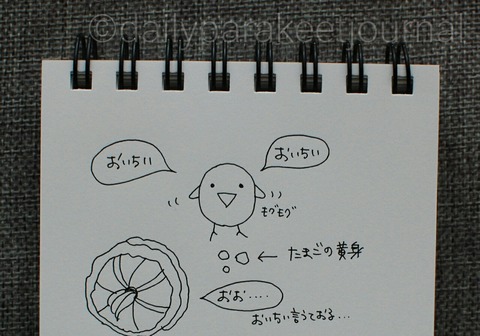 ©dailyparakeetjournal
おいちい
おいちい
モグモグ
← たまごの黄身
おお....
おいちい言うておる...